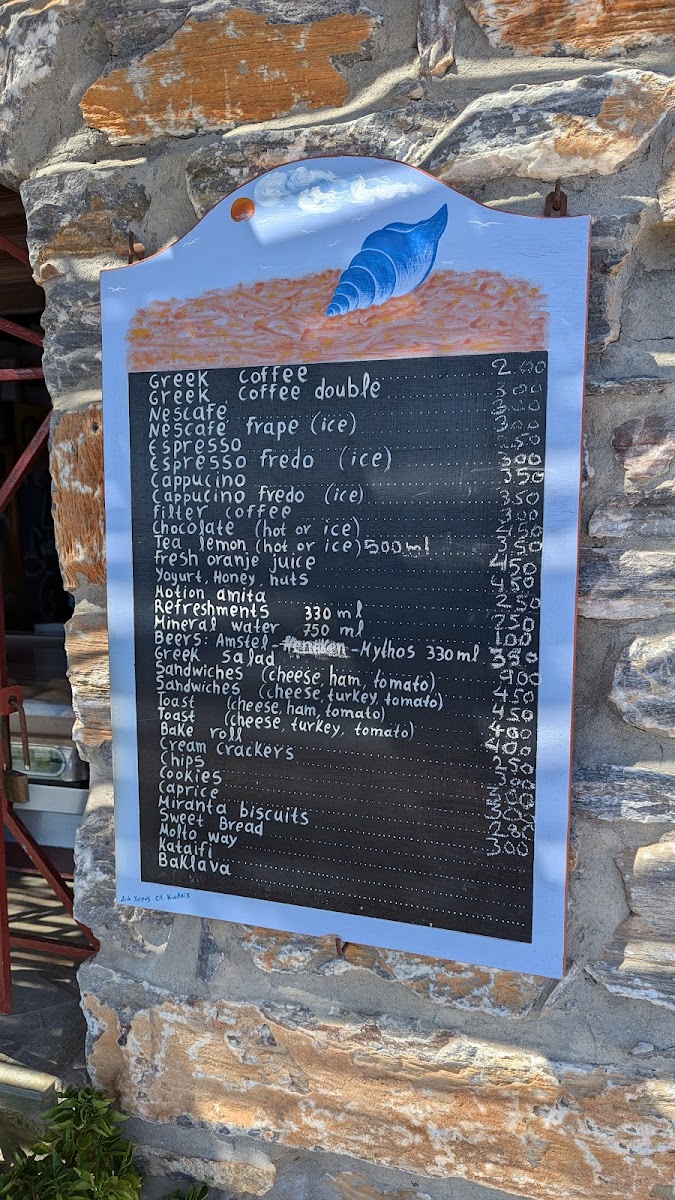 Greek coffee 2.00
Greek coffee double 300
Nescafe 300
Nescafe frape (ice)
Espresso 250
Espresso fredo (ice) 300
Cappucino 350
Cappucino fredo (ice) 350
filter coffee 300
Chocolate (hot or ice)
Tea lemon (hot or ice) 500ml 350
fresh oranje juice 450
Yogurt, Honey, nuts 450
Motion amita
Refreshments 330 ml 250
Mineral water 750 ml 100
Beers: Amstel - - Mythos 330 ml 350
Greek salad 900
Sandwiches (cheese, ham, tomato) 450
Sandwiches (cheese, turkey, tomato) 450
Toast (cheese, ham, tomato) 400
Toast (cheese, turkey, tomato) 400
Bake roll 250
Cream crackers
Chips
Cookies
Caprice
Miranta biscuits 300
Sweet Bread
Molto way
Kataifi
Baklava